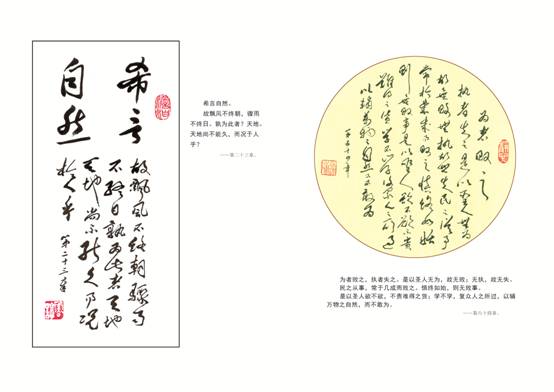 希言
自然
故飘风不终朝骤雨
不终日孰为此者天地
天地尚不能久而况
於人乎
第二十三章
希言自然。
故飘风不终朝，骤雨
不终日，孰为此者？天地。
天地尚不能久，而况于人
乎？
——第二十三章。
为者败之
执者失之是以圣人无为
故无败无执故无失民之从事
常於几成而败之慎终如始
则无败事是以圣人欲不欲不贵
难得之货学不学复众人之所过
以辅万物之自然而不敢为
第六十四章
为者败之，执者失之。是以圣人无为，故无败；无执，故无失。
民之从事，常于几成而败之。慎终如始，则无败事。
是以圣人欲不欲，不贵难得之货；学不学，复众人之所过，以辅
万物之自然，而不敢为。
——第六十四章。